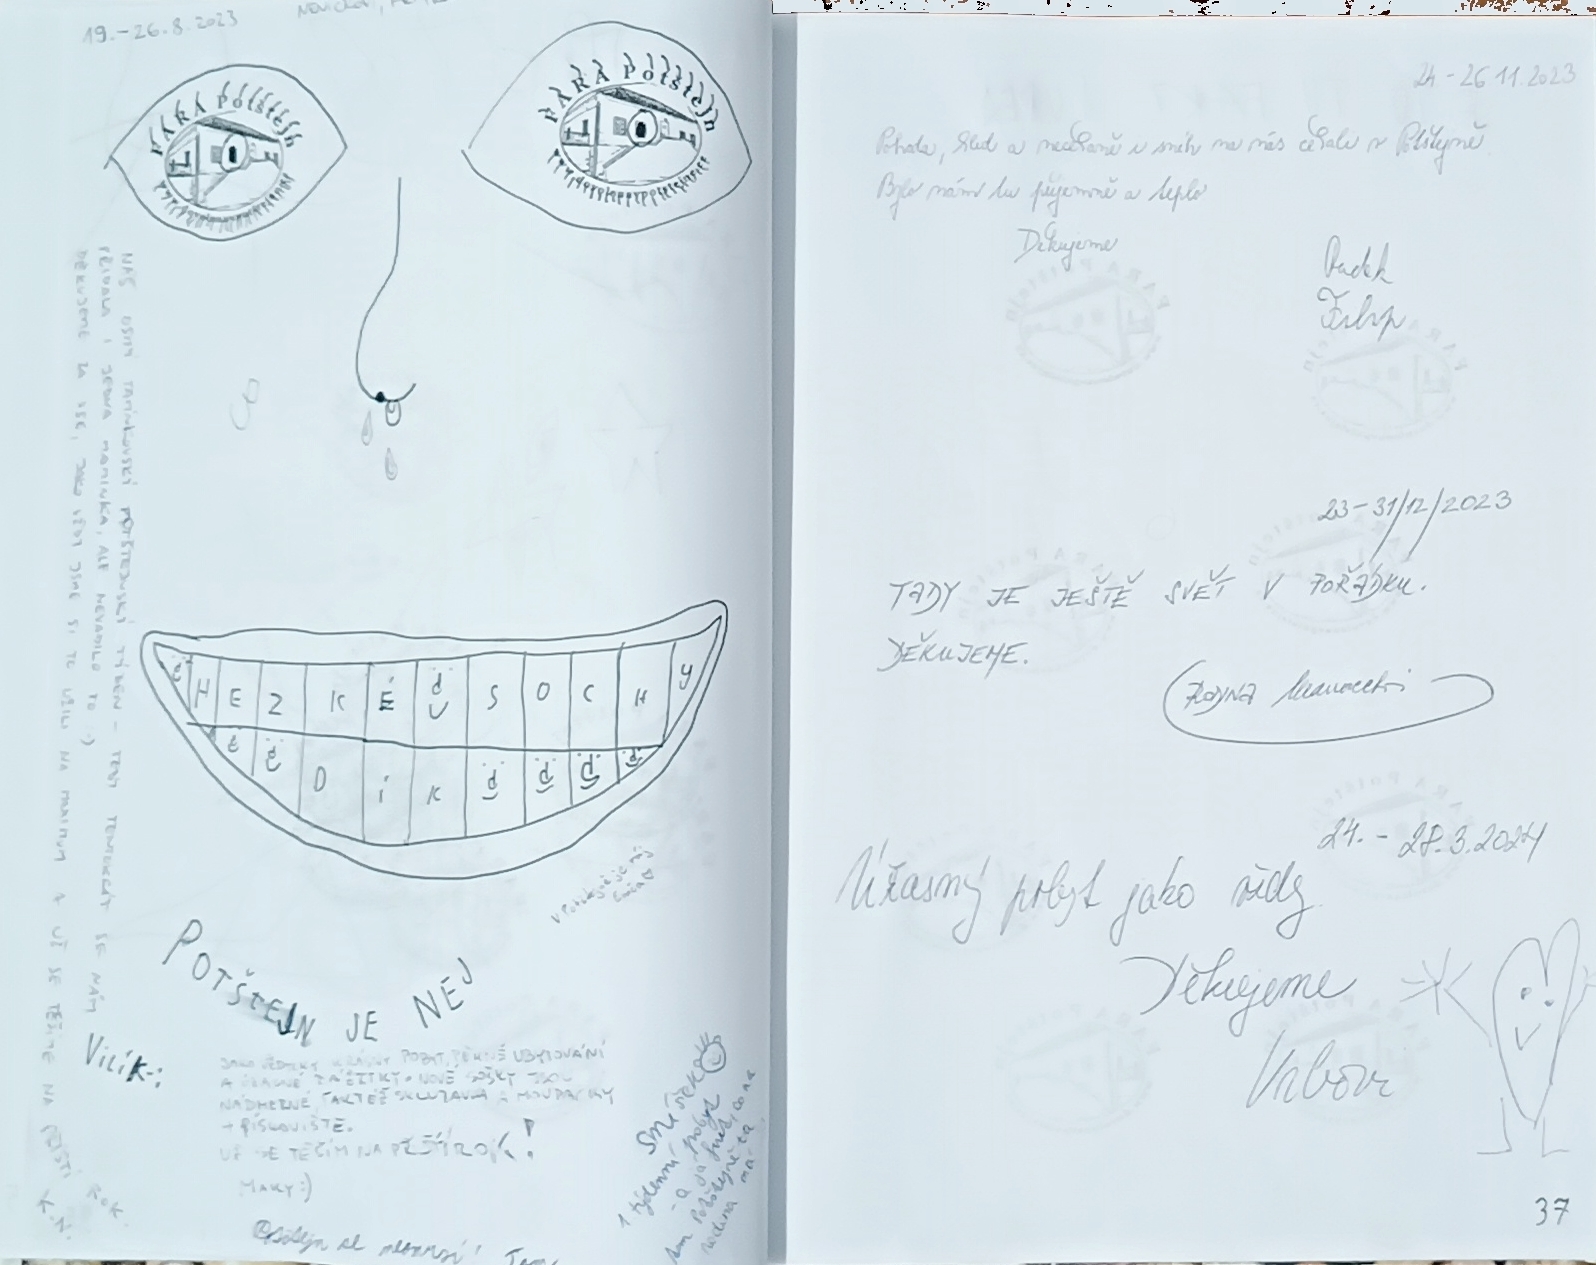 19.-26.8.2023
FARA Potštejn
FARA Potštejn
NÁŠ OSMÝ TATÍNKOVSKÝ POTŠTEJNSKÝ TÝDEN - TEDY TENTOKRÁT SE NÁM
PŘIDALA I JEDNA MAMINKA, ALE NEVADILO TO :)
DĚKUJEME ZA VŠE, JAKO VŽDY JSME SI TO UŽILI NA MAXIMUM A UŽ SE TĚŠÍME NA PŘÍŠTÍ ROK.
K.N.
HEZKÉ SOCHY
DiK
POTŠTEJN JE NEJ
Vilík:
JAKO VŽDYCKY KRÁSNÝ POBYT, PĚKNÉ UBYTOVÁNÍ
A ÚŽASNÉ ZÁŽITKY. NOVÉ SOŠKY JSOU
NÁDHERNÉ, TAKTÉŽ SKLUZAVKA A HOUPAČKY
+ PÍSKOVIŠTĚ.
UŽ SE TĚŠÍM NA PŘÍŠTÍ ROK!
MAKY:)
1. týdenní pobyt
rodina
24-26 11.2023
Pohoda, klid a nečekaně i sníh na nás čekali v Potštýně
Bylo nám tu příjemně a teplo
Děkujeme
Radek
23-31/12/2023
TADY JE JEŠTĚ SVĚT V POŘÁDKU.
DĚKUJEME.
RODINA
24. - 28.3.2024
Úžasný pobyt jako vždy
Děkujeme
Vrbovi
37